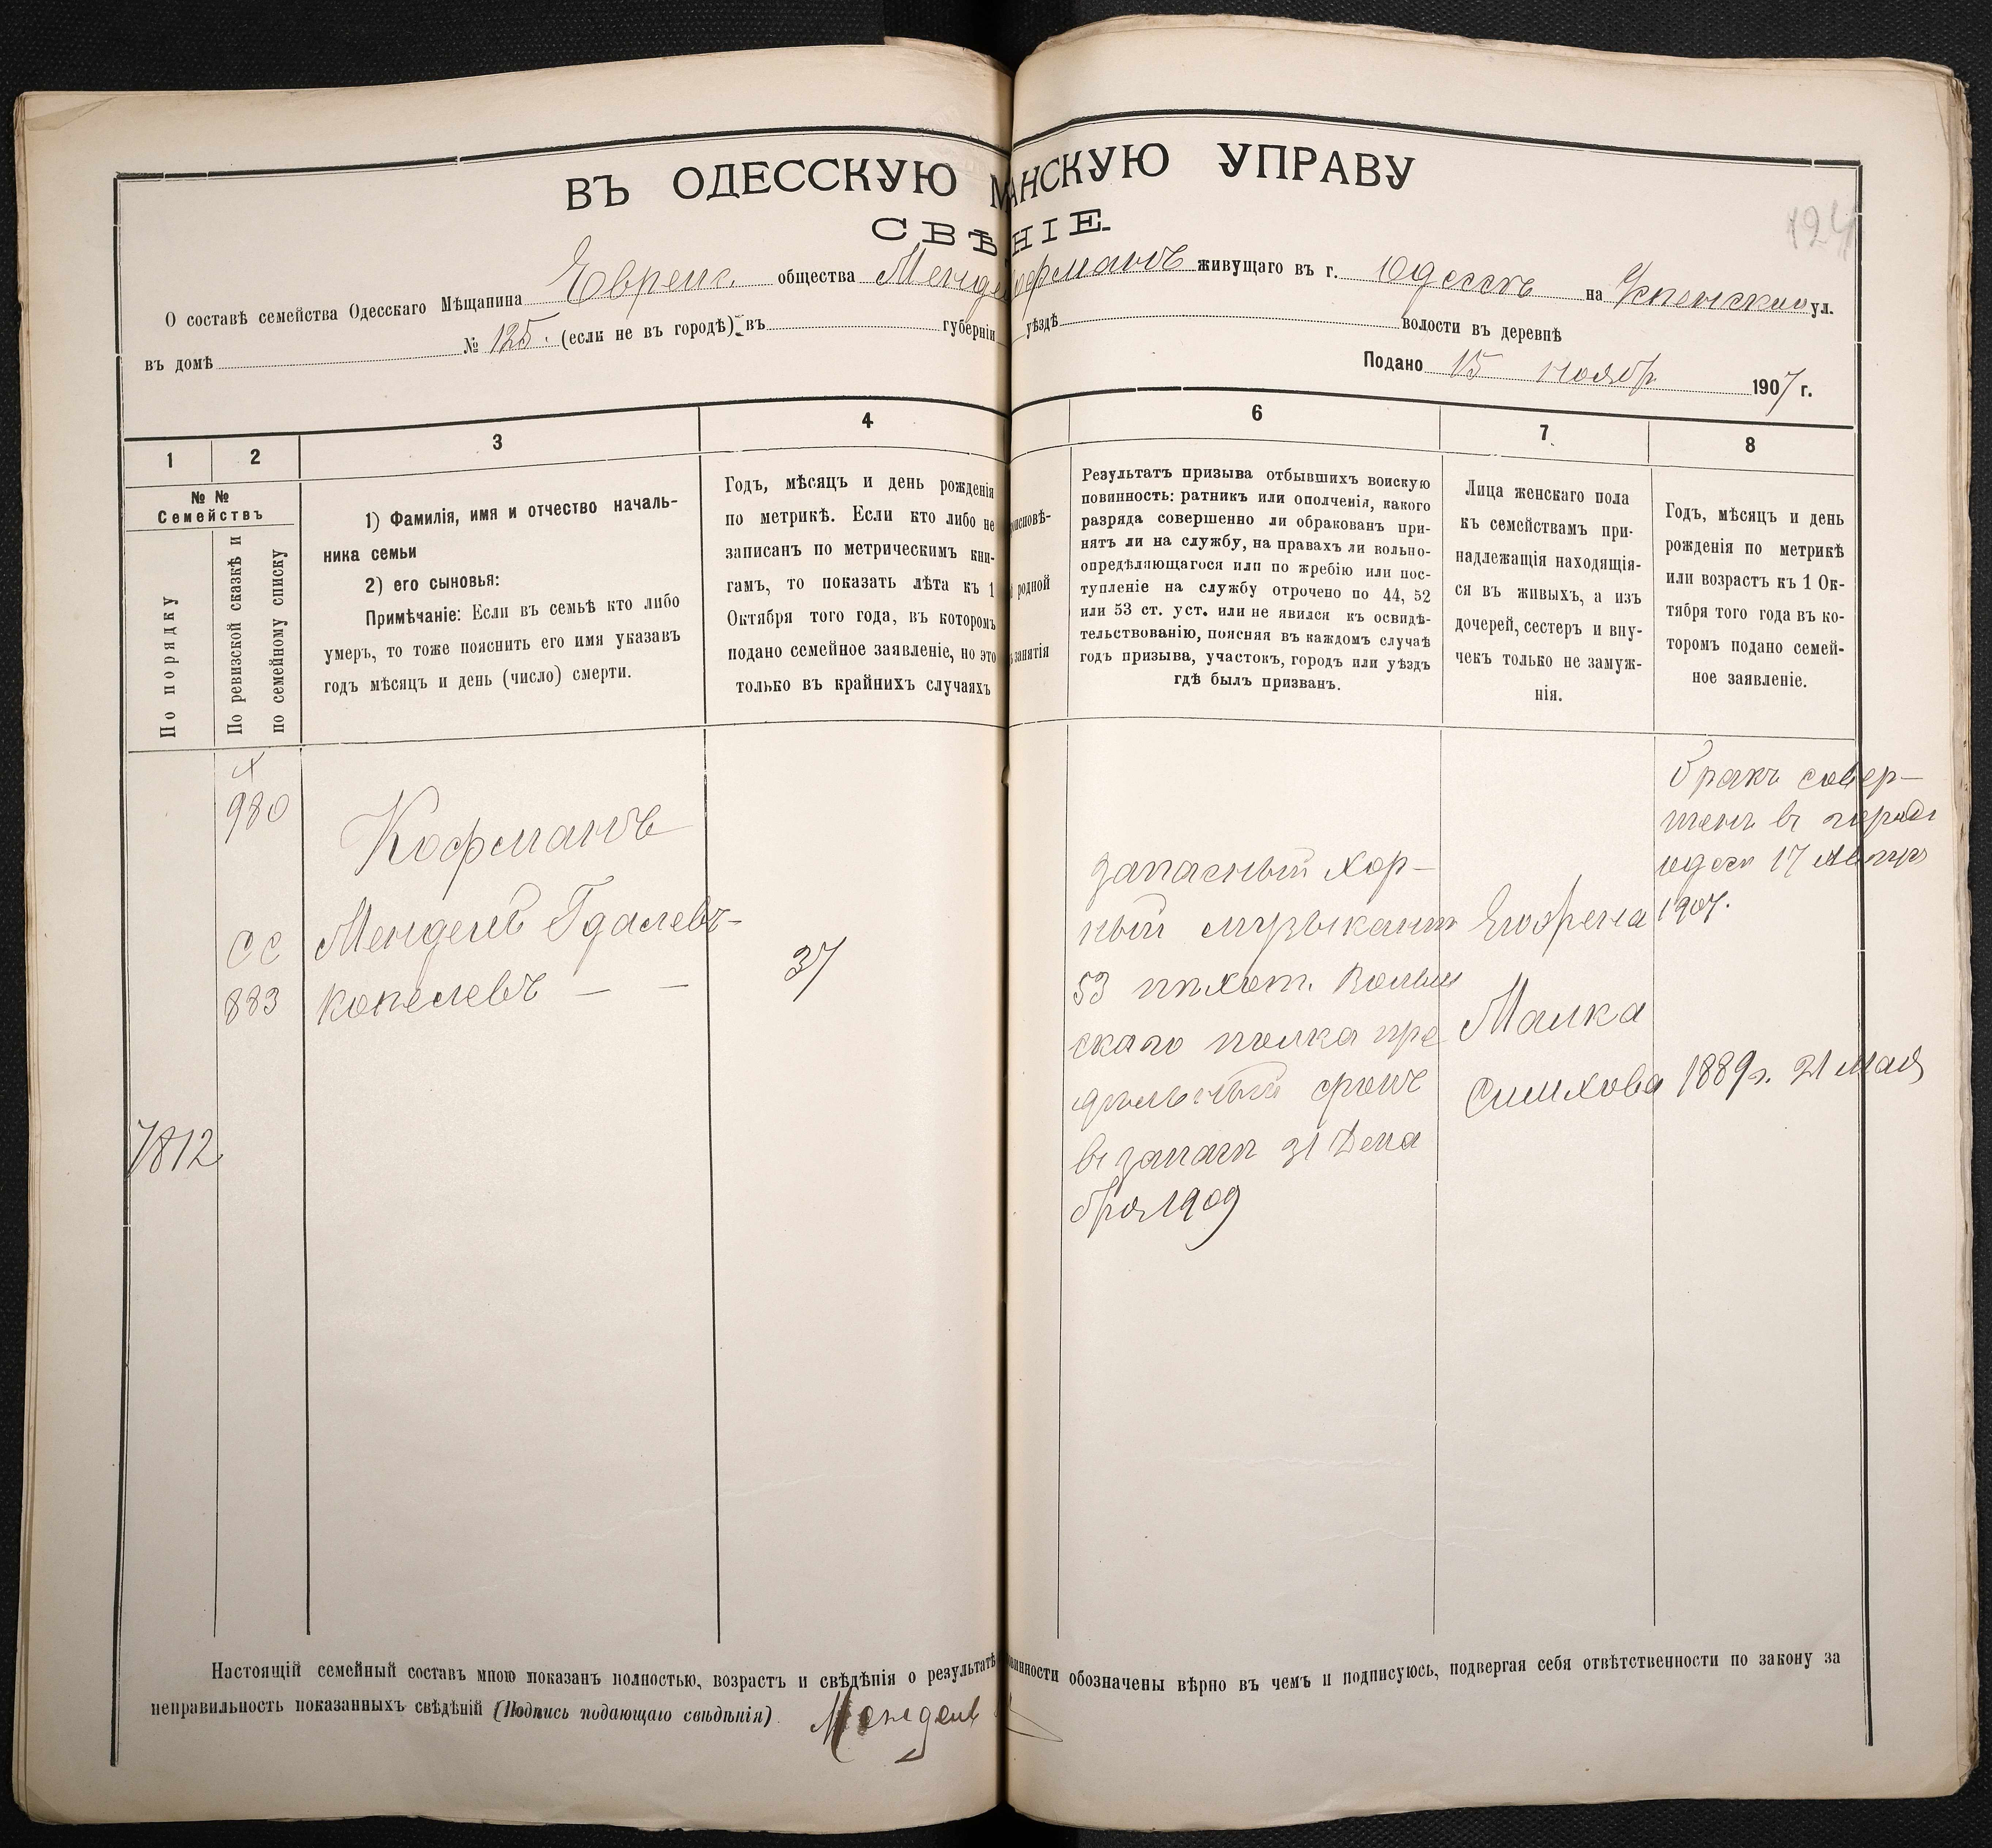 ВЪ ОДЕССКУЮ М АНСКУЮ УПРАВУ
СВѢ НІЕ.
124
О составѣ семейства Одесскаго Мѣщанина Евреис. общества Менде офманъ живущаго въ г. Одессѣ на Успенской ул.
въ домѣ № 125. (если не въ городѣ) въ губерніи уѣздѣ волости въ деревнѣ
Подано 15 ноябр 1907 г.
1 2 3 4 6 7 8
№ №
Семействъ
По порядку
По ревизской сказкѣ и
по семейному списку
1) Фамилія, имя и отчество началь-
ника семьи
2) его сыновья:
Примѣчаніе: Если въ семьѣ кто либо
умеръ, то тоже пояснить его имя указавъ
годъ мѣсяцъ и день (число) смерти.
Годъ, мѣсяцъ и день рожденія
по метрикѣ. Если кто либо не
записанъ по метрическимъ кни-
гамъ, то показать лѣта къ 1
Октября того года, въ которомъ
подано семейное заявленіе, но это
только въ крайнихъ случаяхъ
оисповѣ-
родной
занятія
Результатъ призыва отбывшихъ воискую
повинность: ратникъ или ополченія, какого
разряда совершенно ли обракованъ при-
нятъ ли на службу, на правахъ ли вольно-
опредѣляющагося или по жребію или пос-
тупленіе на службу отрочено по 44, 52
или 53 ст. уст. или не явился къ освидѣ-
тельствованію, поясняя въ каждомъ случаѣ
годъ призыва, участокъ, городъ или уѣздъ
гдѣ былъ призванъ.
Лица женскаго пола
къ семействамъ при-
надлежащія находящія-
ся въ живыхъ, а изъ
дочерей, сестеръ и вну-
чекъ только не замуж-
нія.
Годъ, мѣсяцъ и день
рожденія по метрикѣ
или возрастъ къ 1 Ок-
тября того года въ ко-
торомъ подано семей-
ное заявленіе.
980
СС
883
7812
Кофманъ
Мендель Гдалевъ-
Копелевъ — —
37
Запасный хор-
ный музыкант
53 пѣхот. Волын
скаго полка пре
дѣльный срокъ
въ запасѣ 31 Дека
бря 1909
Малка
Симхова
бракъ совер-
шенъ въ городѣ
одесс 17
1907.
1889г. 21 мая
Настоящій семейный составъ мною показанъ полностью, возрастъ и свѣдѣнія о результатѣ винности обозначены вѣрно въ чемъ и подписуюсь, подвергая себя отвѣтственности по закону за
неправильность показанныхъ свѣдѣній (Подпись подающаго свѣдѣнія). Мендель